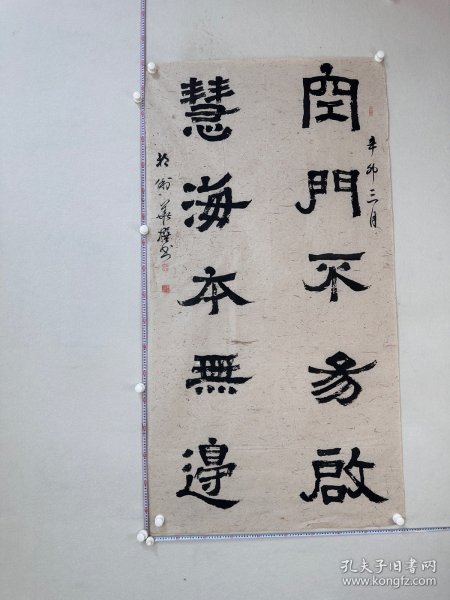 空門不易啟
辛卯三月
慧海本無邊
孔夫子旧书网
www.kongfz.com